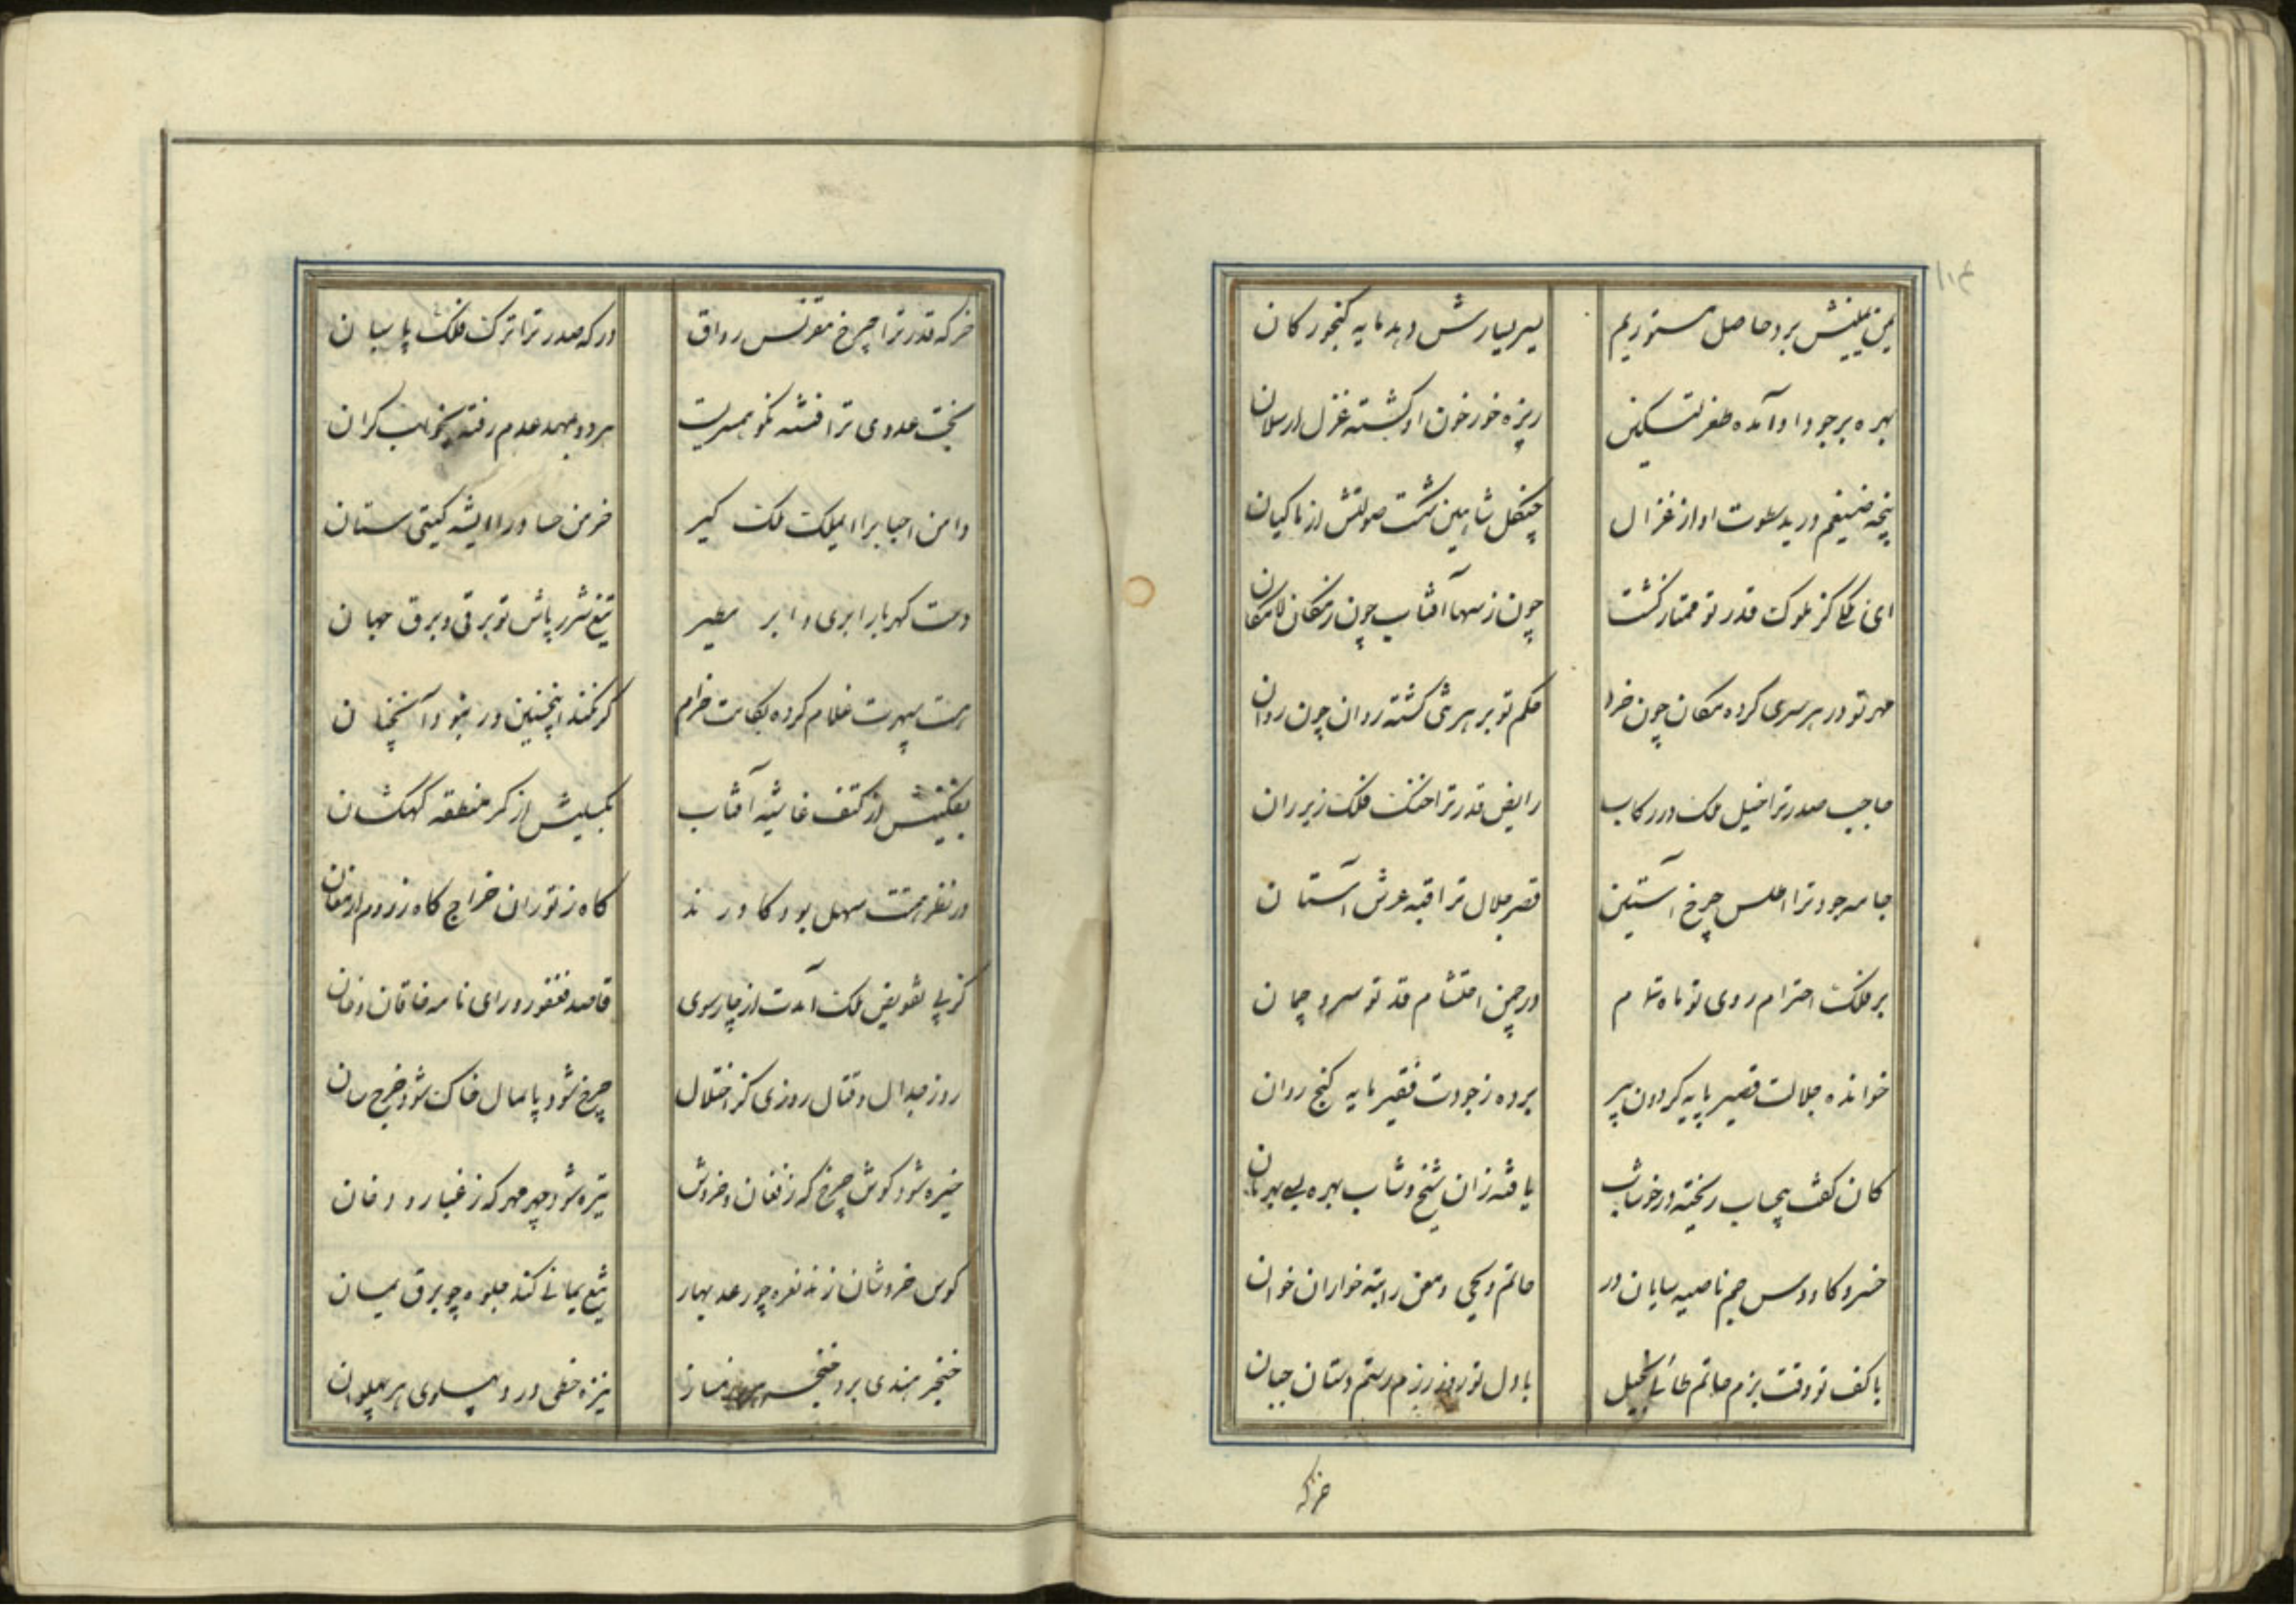 یمن یمینش برد حاصل مستور یم
یسر یسارش دهد مایه کنجور کان
بهره بر جود او آمده ظفر تسکین
ریزه خور خون او کشته غزل ارسلان
پنجه ضیغم درید سطوت او از غزال
چنکل شاهین شکست صولتش از ماکیان
ای ز کز ملوک قدر تو ممتاز کشت
چون ز سها آفتاب چون ز مکان لامکان
مهر تو در هر سری کرده مکان چون خرد
حکم تو بر هر شی کشته روان چون روان
حاجب صدر ترا خیل ملک در رکاب
رایض قدر ترا خنک فلک زیر ران
جامه جود ترا اطلس چرخ آستین
قصر جلال ترا قبه عرش آستان
بر فلک احترام روی تو ماه تمام
در چمن احتشام قد تو سرو چمان
خوانده جلالت قصیر پایه کردون پیر
برده ز جودت فقیر مایه کنج روان
کان کف پیحاب ریخته در خوشاب
یافته زان شیخ و شاب بهره بی بهرمان
خسرو کاووس جم ناصیه سایان در
حاتم و یحیی و معن راتبه خواران خوان
با کف تو وقت بزم حاتم طائی بخیل
با دل تو روز رزم رستم دستان جبان
خرکه
خرکه قدر ترا چرخ مقرنس رواق
درکه صدر ترا ترک فلک پاسبان
بخت عدوی ترا فتنه نکو همسریست
هر دو بمهد عدم رفته بخواب کران
دامن احبابرا ای ملک ملک کیر
خرمن حساد را ای شه کیتی ستان
دست کهربار ابری و ابر مطیر
تیغ شرر پاش تو برقی و برق جهان
هست سپهرت غلام کرده بکامت خرام
کر نکند اینچنین ور نبود آنچنان
بفکنیش از کتف غاشیه آفتاب
بکسلیش از کمر منطقه کهکشان
در نظر همتت سهل بود کاورند
کاه ز توران خراج کاه ز روم ارمغان
کز پی تفویض ملک آمدت از چار سوی
قاصد فغفور و رای نامه خاقان و خان
روز جدال و قتال روزی کز اختلال
چرخ شود پایمال خاک شود چرخ سان
خیره شود کوش چرخ که ز فغان و خروش
تیره شود چهر مهر که ز غبار و دخان
کوس خروشان زند نعره چو رعد بهار
تیغ یمانی کند جلوه چو برق یمان
خنجر هندی برد حنجر
نیزه خطی درد پهلوی هر پهلوان